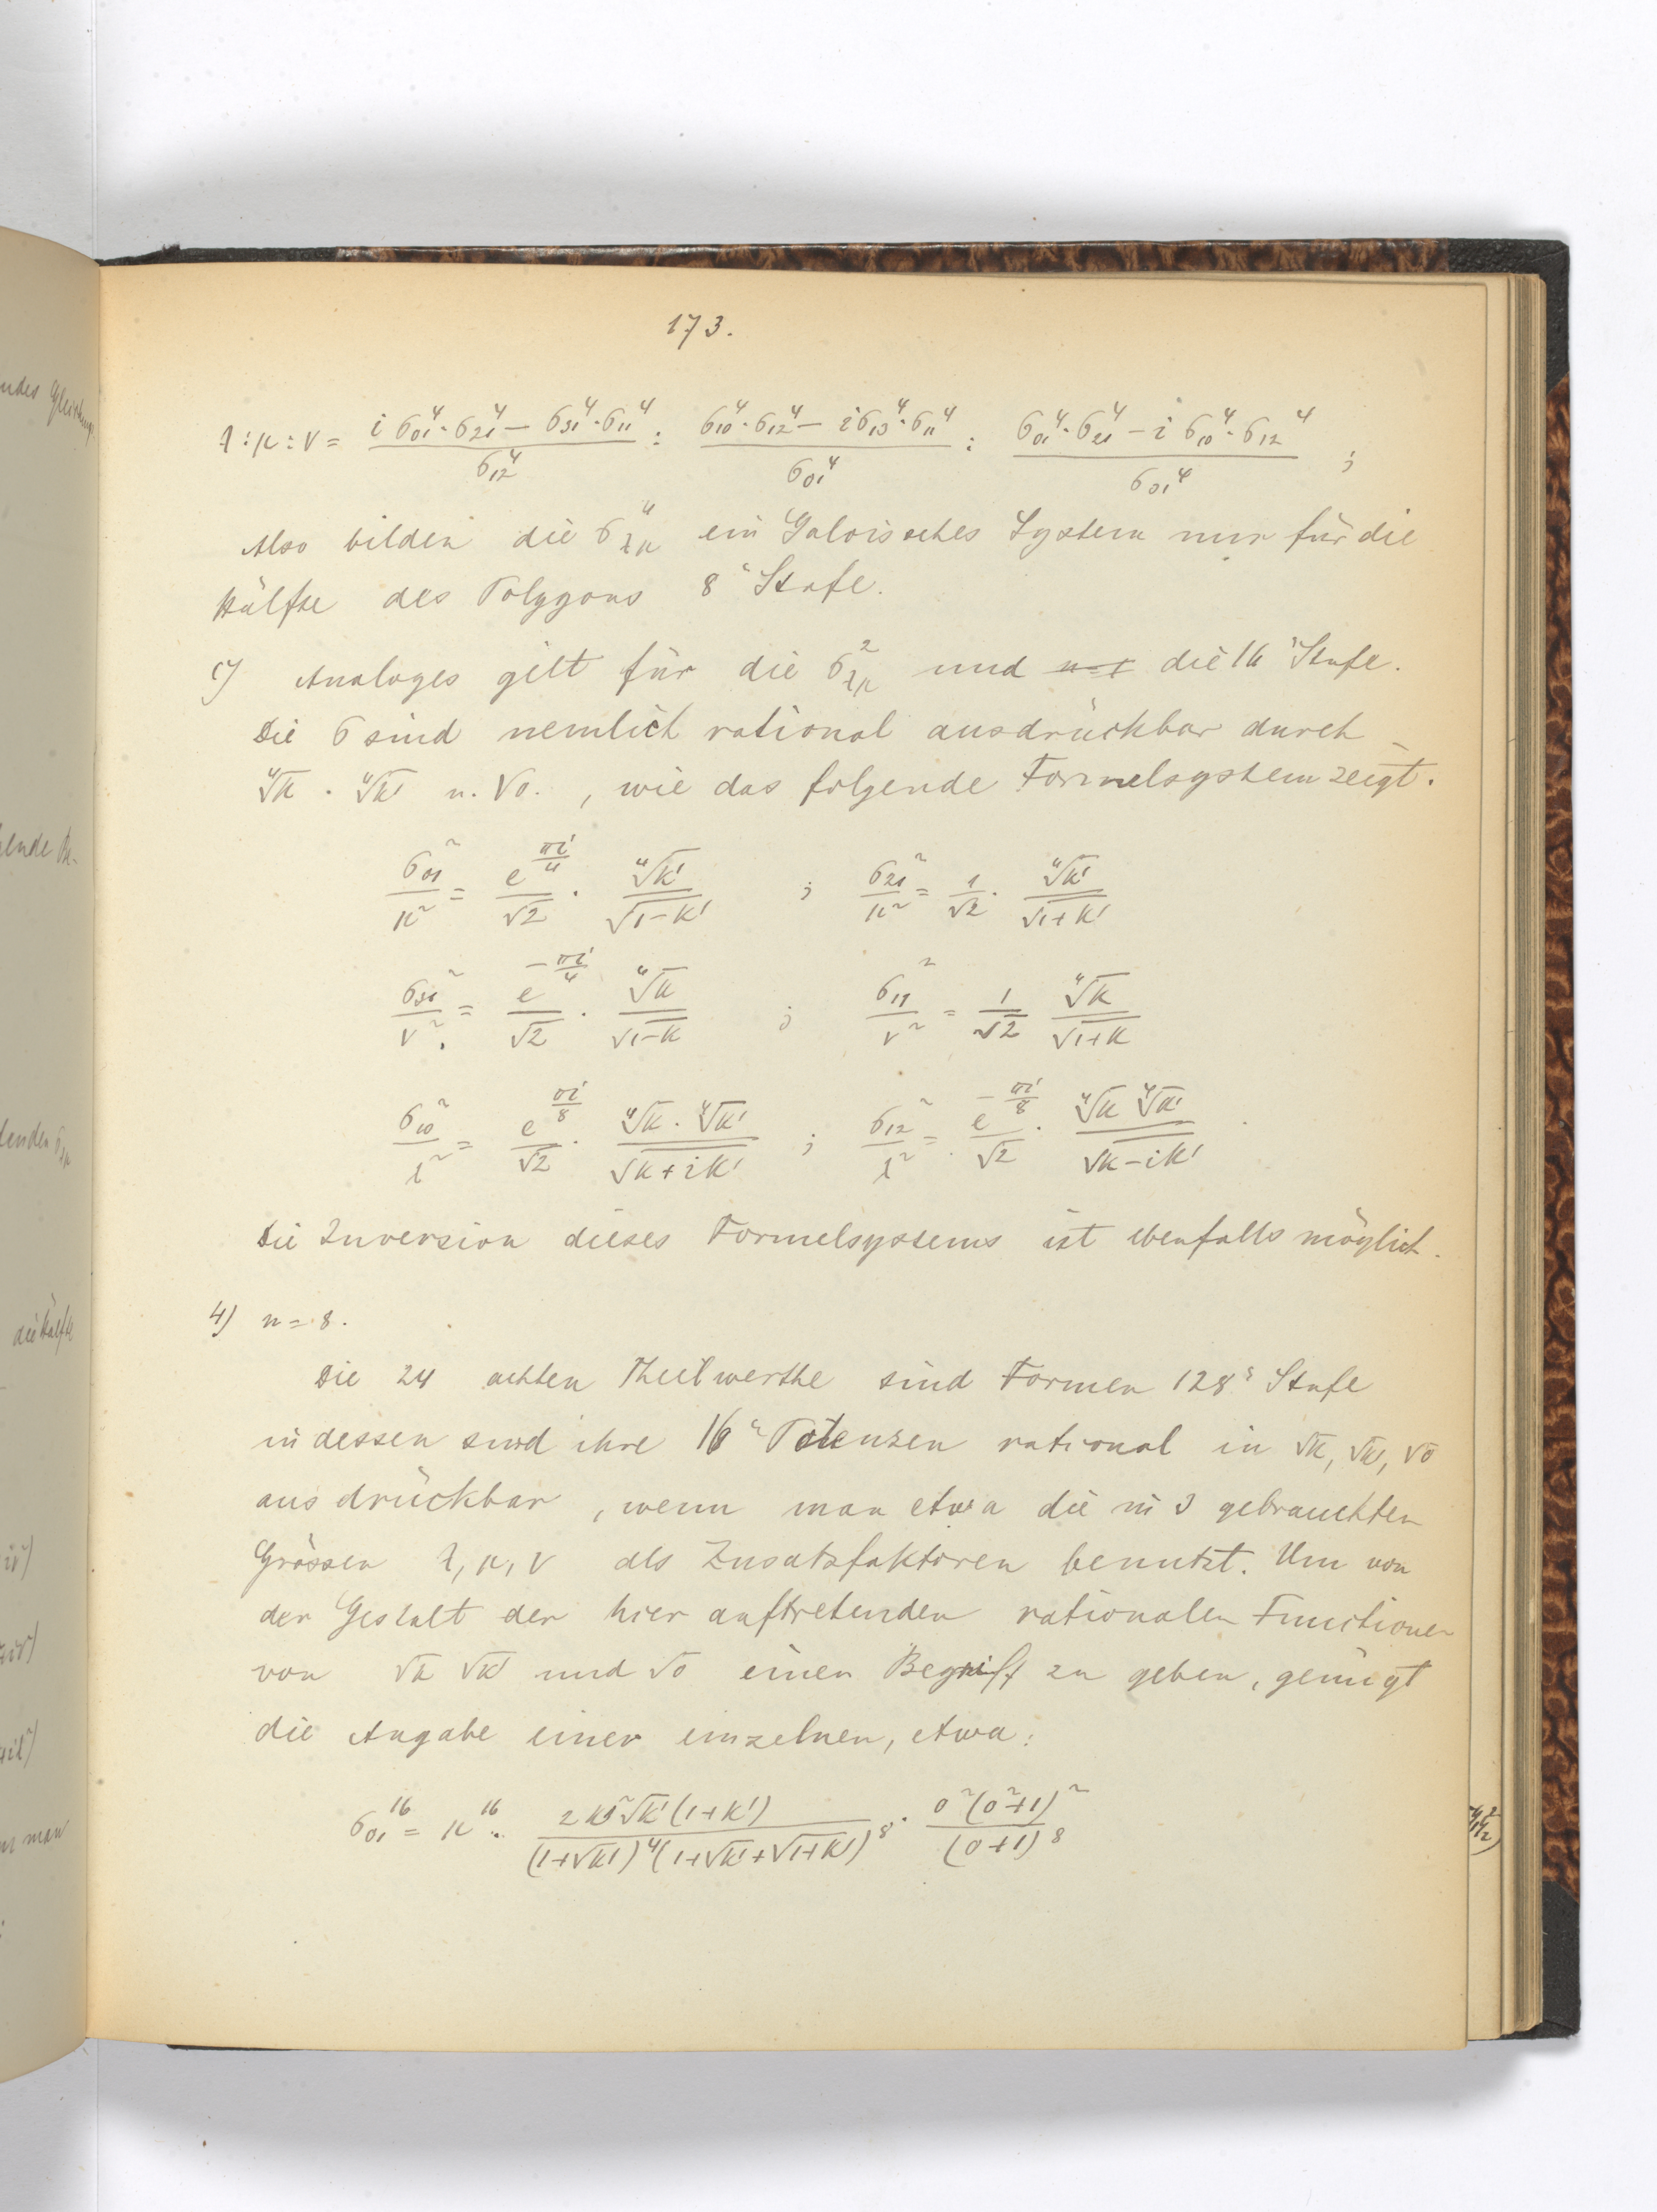 173.
λ:μ:ν = (i σ₀₁⁴·σ₂₁⁴ − σ₃₁⁴·σ₁₁⁴)/σ₁₂⁴ : (σ₁₀⁴·σ₁₂⁴ − iσ₁₃⁴·σ₁₁⁴)/σ₀₁⁴ : (σ₀₁⁴·σ₂₁⁴ − i σ₁₀⁴·σ₁₂⁴)/σ₀₁⁴ ;
Also bilden die σ⁴λμ ein Galoissches System nur für die
Hälfte des Polygons 8ͬ Stufe.
c) Analoges gilt für die σ²λμ und die 16ͬ Stufe.
Die σ sind nemlich rational ausdrückbar durch
∜k · ∜k' u. √o. , wie das folgende Formelsystem zeigt.
σ₀₁²/μ² = e^(πi/4)/√2 · ∜k'/√(1−k') ; σ₂₁²/μ² = 1/√2 · ∜k'/√(1+k')
σ₃₁²/ν² = e^(−πi/4)/√2 · ∜k/√(1−k) ; σ₁₁²/ν² = 1/√2 ∜k/√(1+k)
σ₁₀²/λ² = e^(πi/8)/√2 · ∜k · ∜k'/√(k+ik') ; σ₁₂²/λ² = e^(−πi/8)/√2 · ∜k ∜k'/√(k−ik')
Die Inversion dieses Formelsystems ist ebenfalls möglich.
4) n = 8.
Die 24 achten Theilwerthe sind Formen 128ͬ Stufe
indessen sind ihre 16ͬ Potenzen rational in √k, √k', √o
ausdrückbar, wenn man etwa die in 3 gebrauchten
Grössen λ, μ, ν als Zusatzfaktoren benutzt. Um von
der Gestalt der hier auftretenden rationalen Functionen
von √k √k' und √o einen Begriff zu geben, genügt
die Angabe einer einzelnen, etwa:
σ₀₁¹⁶ = μ¹⁶ · √k'(1+k')/((1+√k')⁴(1+√k'+√(1+k'))⁸) · o²(o²+1)²/(o+1)⁸